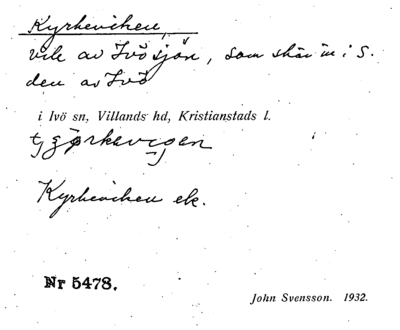 Kyrkeviken,
vik av Ivösjön, som skär in i S.
den av Ivö
i Ivö sn, Villands hd, Kristianstads l.
Kyrkeviken ek.
Nr 5478.
John Svensson. 1932.